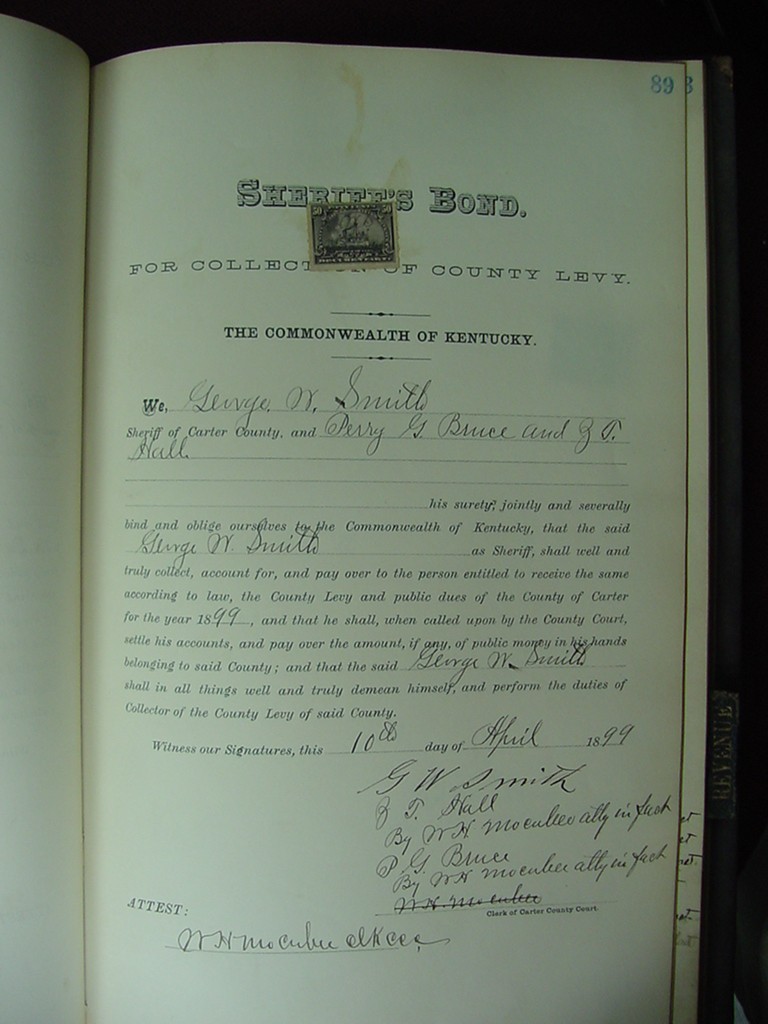 89 3
SHERIFF'S BOND.
50 50
FOR COLLECTION OF COUNTY LEVY.
THE COMMONWEALTH OF KENTUCKY.
We, George W. Smith
Sheriff of Carter County, and Perry G. Bruce and Z T.
Hall
his surety, jointly and severally
bind and oblige ourselves to the Commonwealth of Kentucky, that the said
George W. Smith as Sheriff, shall well and
truly collect, account for, and pay over to the person entitled to receive the same
according to law, the County Levy and public dues of the County of Carter
for the year 1899, and that he shall, when called upon by the County Court,
settle his accounts, and pay over the amount, if any, of public money in his hands
belonging to said County; and that the said George W. Smith
shall in all things well and truly demean himself, and perform the duties of
Collector of the County Levy of said County.
Witness our Signatures, this 10th day of April 1899
G W Smith
Z T. Hall
By W H Mocubee atty in fact
P. G Bruce
By W H Mocubee atty in fact
W. H. Mocubee
Clerk of Carter County Court.
ATTEST:
W H Mocubee clk ccc
REVENUE